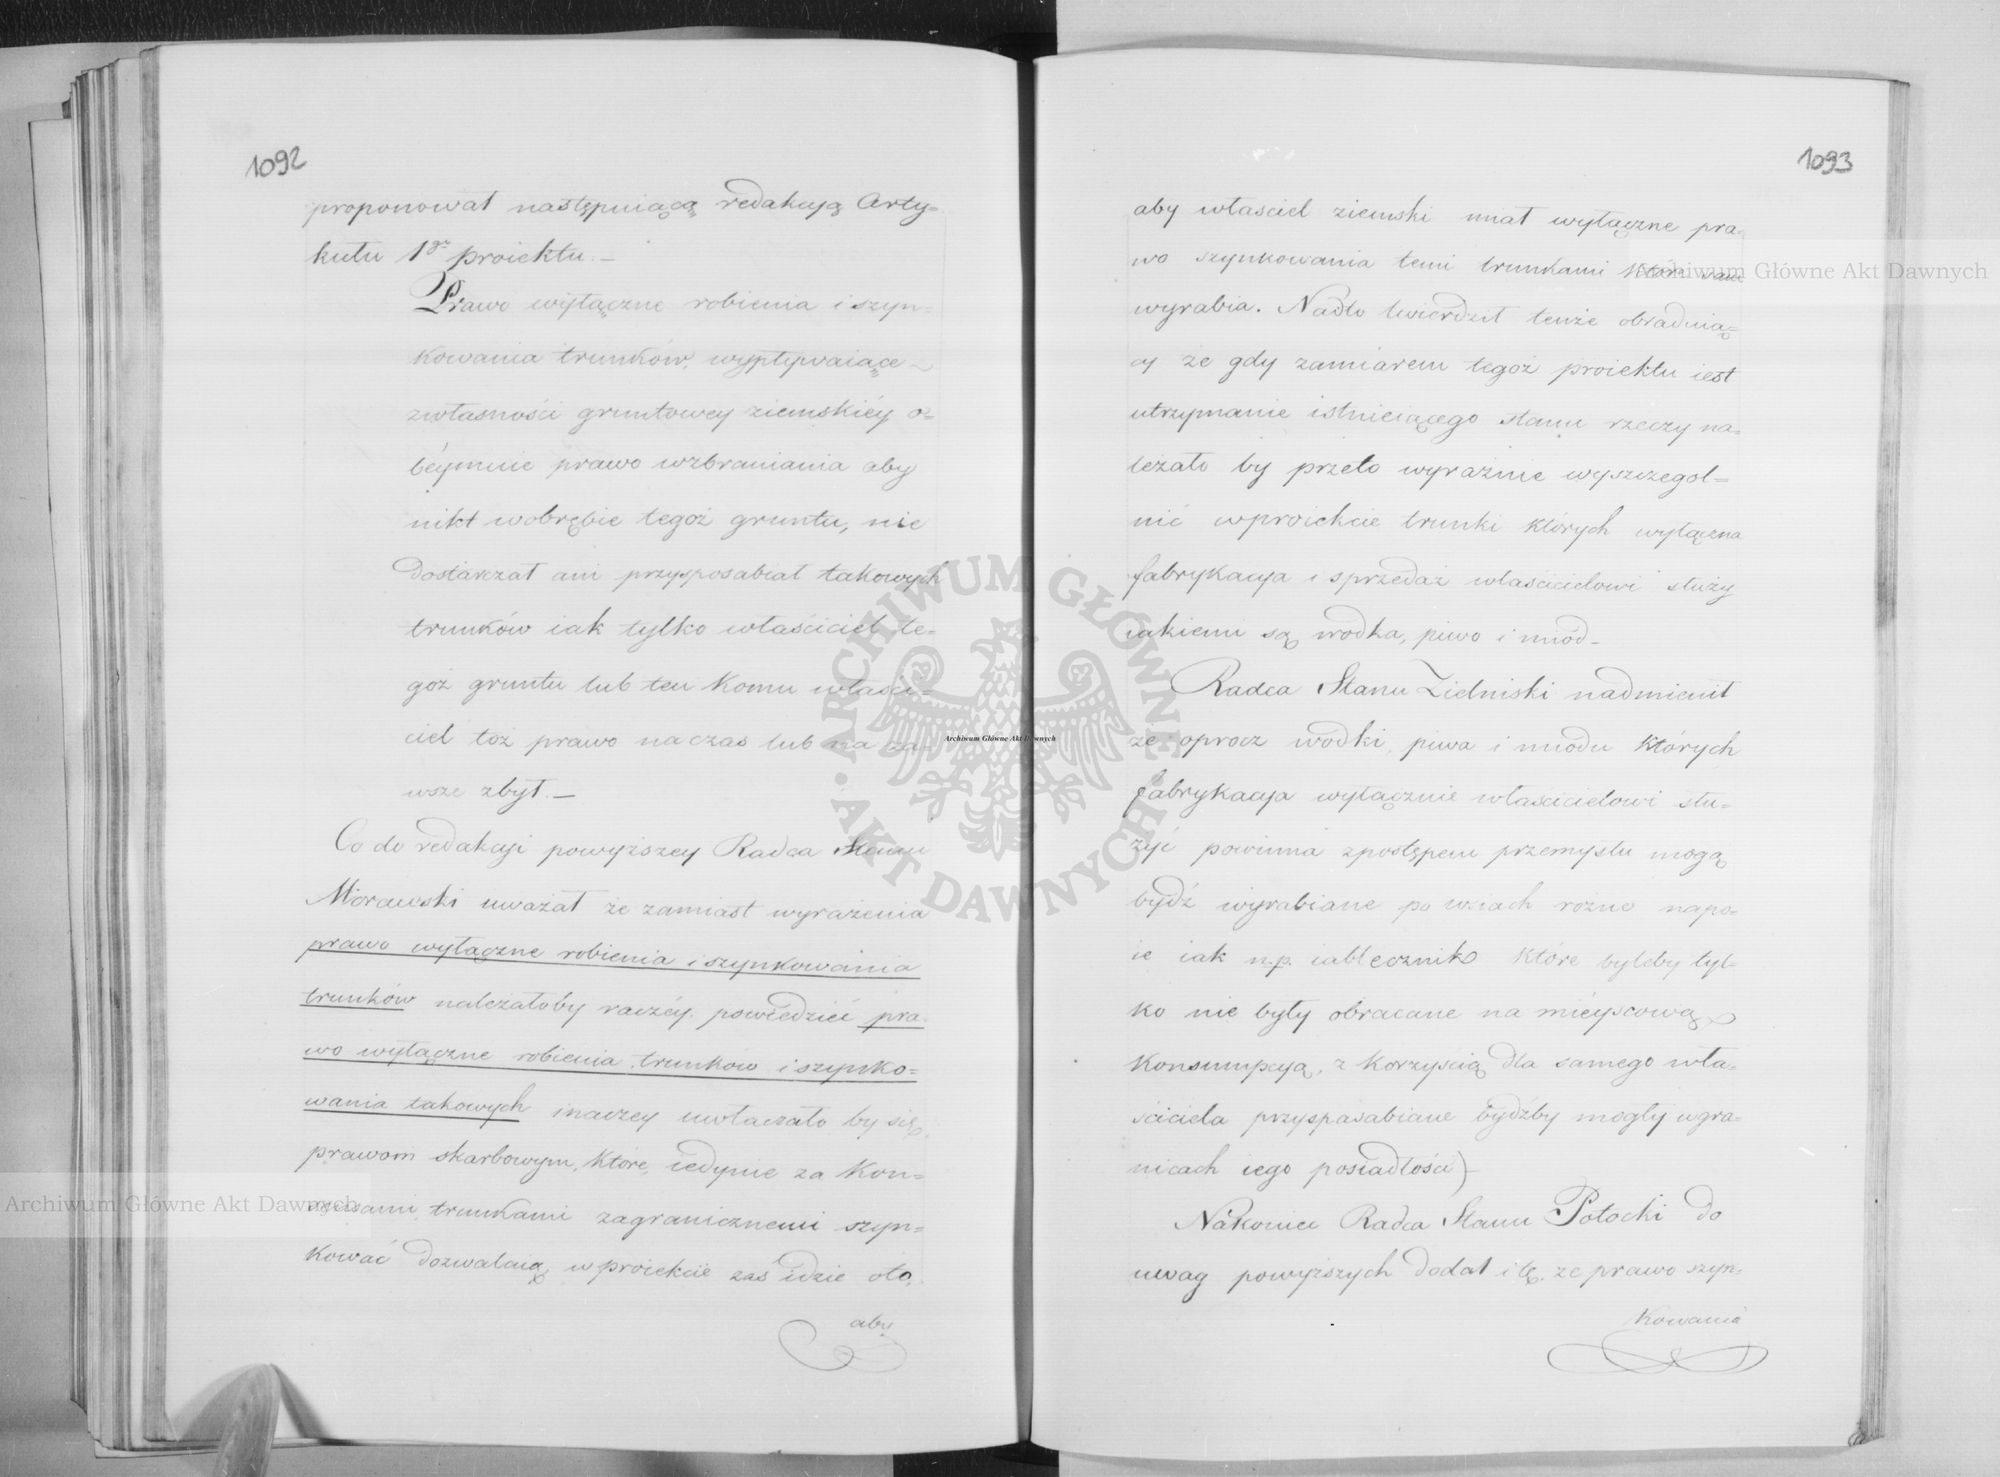 1092
proponował następuiącą redakcyą Arty=
kułu 1go proiektu.—
Prawo wyłączne robienia i szyn=
kowania trunków, wypływaiące
zwłasności gruntowey ziemskiéy o=
béymuie prawo wzbraniania aby
nikt wobrębie tegoż gruntu, nie
dostarczał ani przysposabiał takowych
trunków iak tylko właściciel te=
goż gruntu lub ten komu właści=
ciel toż prawo na czas lub na za=
wsze zbył.—
Co do redakcyi powyższey Radca Stanu
Morawski uważał że zamiast wyrażenia
prawo wyłączne robienia i szynkowania
trunków należałoby raczéy powiedzieć pra=
wo wyłączne robienia trunków i szynko=
wania takowych inaczey uwłaczało by się
prawom skarbowym, które, iedynie za kon=
sensami trunkami zagranicznemi szyn=
kować dozwalaią, w proiekcie zaś idzie oto,
aby
1093
aby właściel ziemski miał wyłączne pra=
wo szynkowania temi trunkami które sam
wyrabia. Nadto twierdził tenże obraduią=
cy że gdy zamiarem tegoż proiektu iest
utrzymanie istnieiącego stanu rzeczy na=
leżało by przeto wyraźnie wyszczegol=
nić wproiekcie trunki których wyłączna
fabrykacya i sprzedaż właścicielowi służy
iakiemi są wodka, piwo i miod—
Radca Stanu Zieliński nadmienił
że oprocz wodki, piwa i miodu których
fabrykacya wyłącznie właścicielowi słu=
żyć powinna zpostępem przemysłu mogą
bydź wyrabiane po wsiach rożne napo=
ie iak n.p. iabłecznik które byleby tyl=
ko nie były obracane na mieyscową
konsumpcyą, z korzyścią dla samego wła=
ściciela przysposabiane bydźby mogły wgra=
nicach iego posiadłości)—
Nakoniec Radca Stanu Potocki do
uwag powyższych dodał i tę, że prawo szyn=
kowania
Archiwum Główne Akt Dawnych
Archiwum Główne Akt Dawnych
Archiwum Główne Akt Dawnych
ARCHIWUM GŁÓWNE · AKT DAWNYCH ·